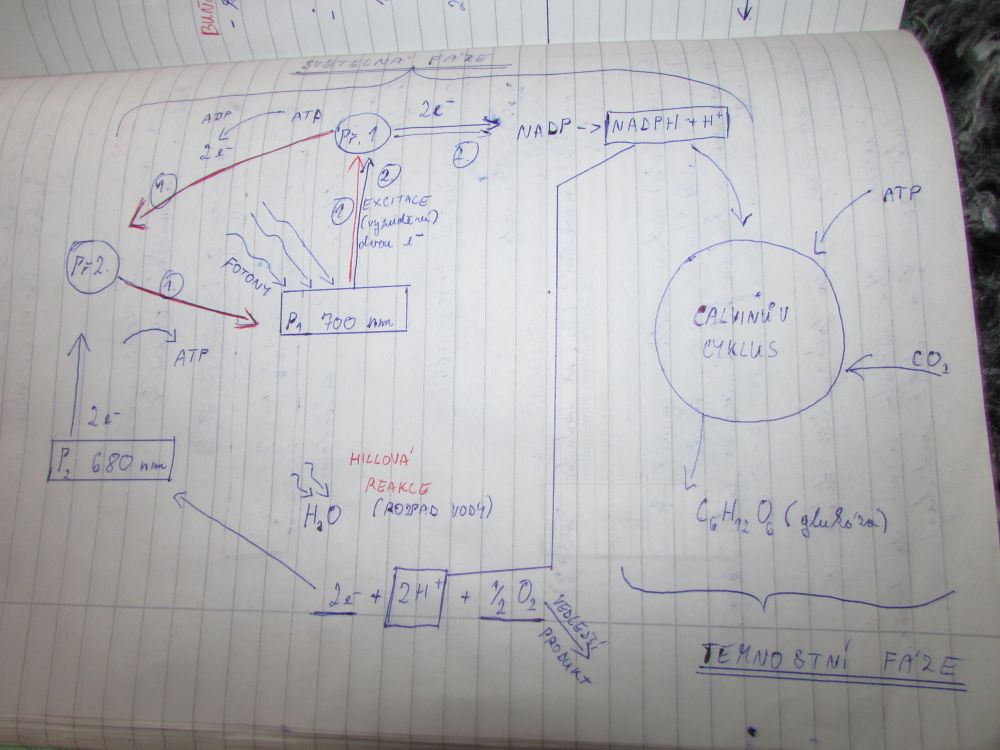 SVĚTELNÁ FÁZE
ADP
ATP
2e⁻
Př. 1
2e⁻
2.
NADP -> NADPH + H⁺
1.
1.
2.
EXCITACE
(vybuzení)
dvou e⁻
ATP
FOTÓNY
Př 2.
1.
P₁ 700 nm
ATP
CALVINŮV
CYKLUS
CO₂
2e⁻
P₂ 680 nm
HILLOVÁ
REAKCE
H₂O (ROZPAD VODY)
C₆H₁₂O₆ (glukóza)
2e⁻ + 2H⁺ + ½ O₂
VEDLEJŠÍ
PRODUKT
TEMNOSTNÍ FÁZE